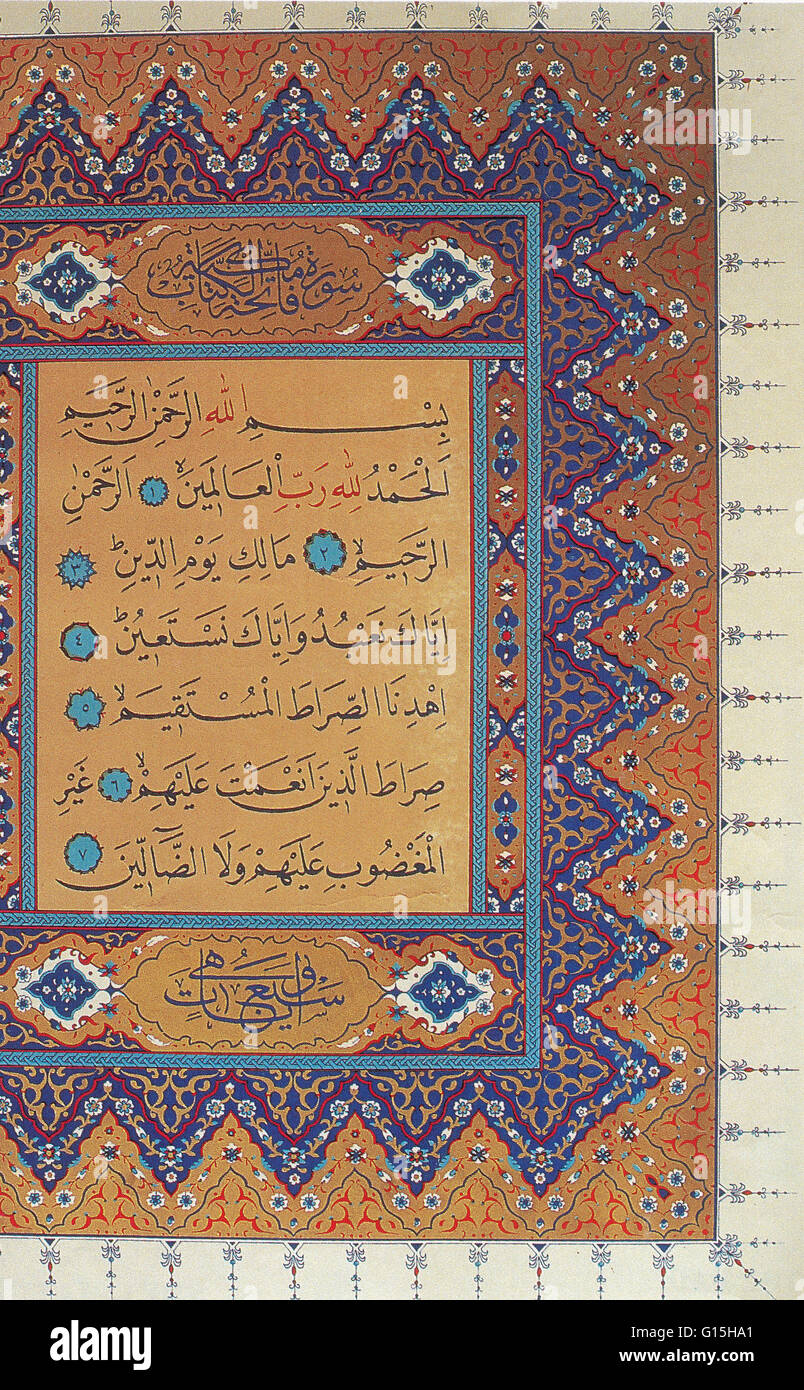 سُورَةُ فَاتِحَةِ الْكِتَابِ مَكِّيَّةٌ
بِسْمِ اللهِ الرَّحْمٰنِ الرَّحِيمِ
اَلْحَمْدُ لِلّٰهِ رَبِّ الْعَالَمِينَ ۙ ١ اَلرَّحْمٰنِ
الرَّحِيمِ ۙ ٢ مَالِكِ يَوْمِ الدِّينِ ۜ ٣
اِيَّاكَ نَعْبُدُ وَاِيَّاكَ نَسْتَعِينُ ۜ ٤
اِهْدِنَا الصِّرَاطَ الْمُسْتَقِيمَ ۙ ٥
صِرَاطَ الَّذِينَ اَنْعَمْتَ عَلَيْهِمْ ۙ ٦ غَيْرِ
الْمَغْضُوبِ عَلَيْهِمْ وَلَا الضَّٓالِّينَ ٧
وَهِيَ سَبْعُ اٰيَاتٍ
alamy
a
alamy stock photo
G15HA1
www.alamy.com